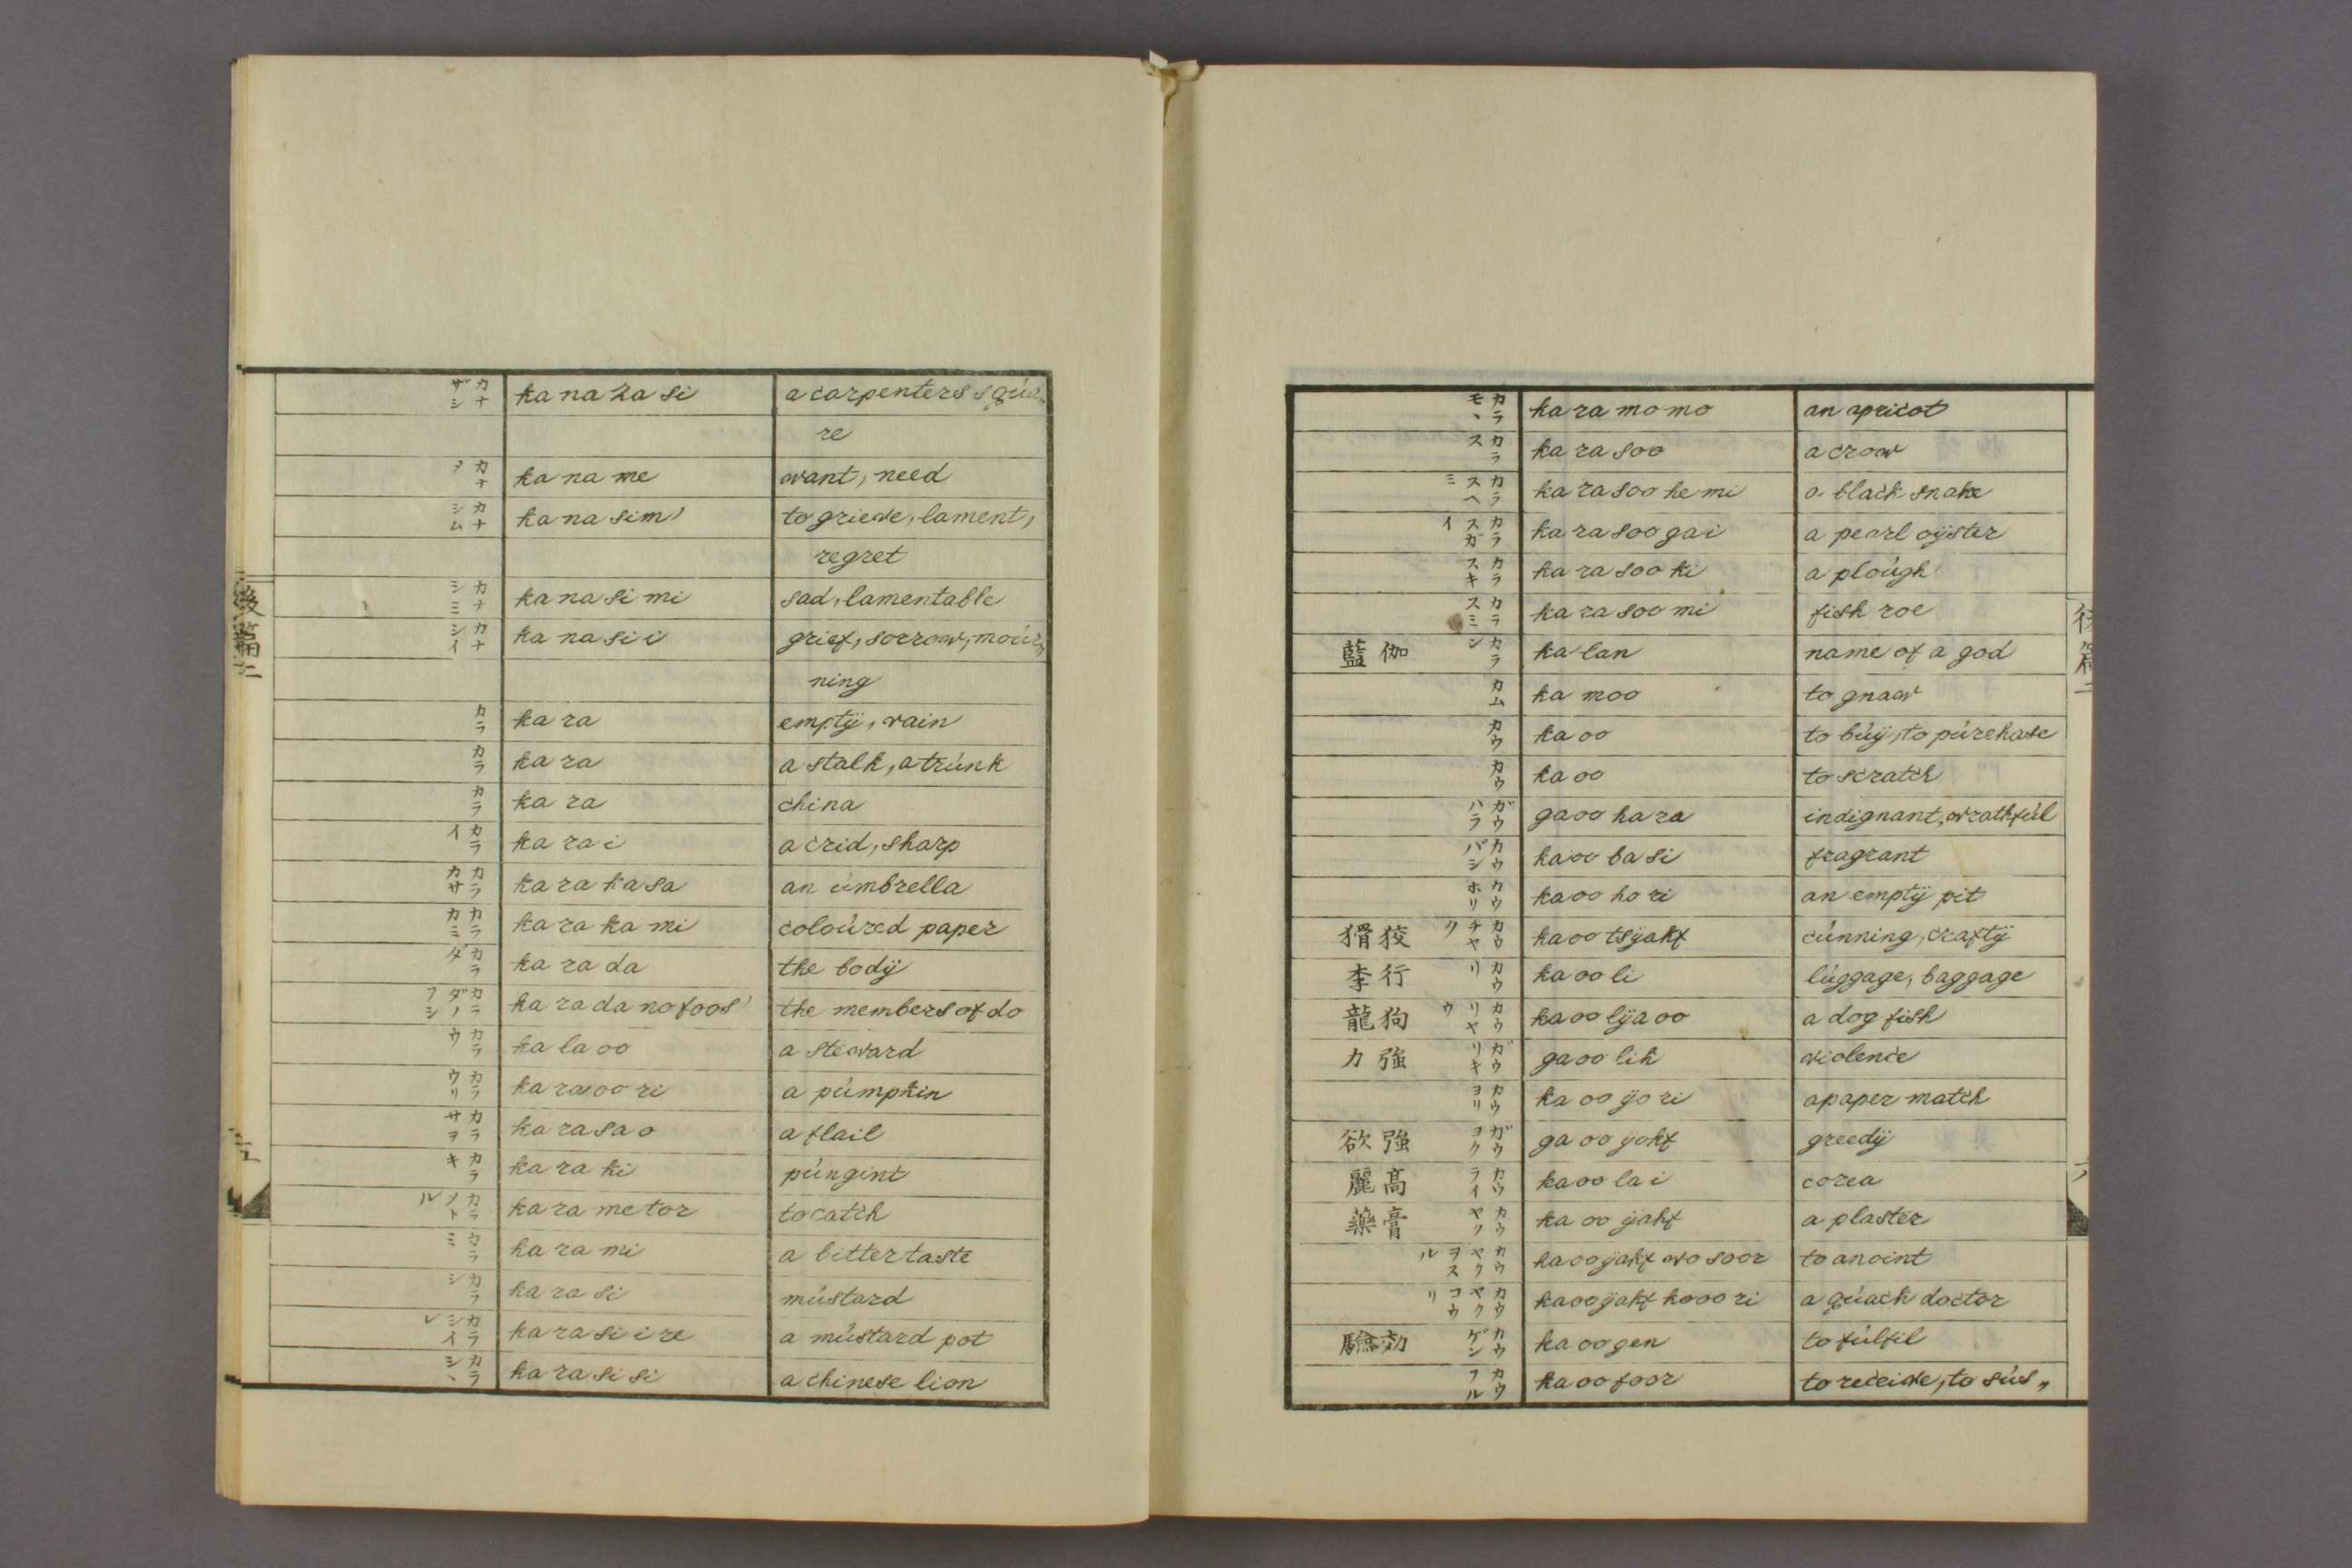 カナザシ ka na za si a carpenters sqúa„
re
カナメ ka na me want, need
カナシム ka na sim' to grieve, lament,
regret
カナシミ ka na si mi sad, lamentable
カナシイ ka na si i grief, sorrow, moúr„
ning
カラ ka ra emptÿ, vain
カラ ka ra a stalk, a trúnk
カラ ka ra china
カライ ka ra i acrid, sharp
カラカサ ka ra ka sa an úmbrella
カラカミ ka ra ka mi coloúred paper
カラダ ka ra da the bodÿ
カラダノフシ ka ra da no foos' the members of do
カラウ ka la oo a steward
カラウリ ka ra oo ri a púmpkin
カラサヲ ka ra sa o a flail
カラキ ka ra ki púngint
カラメトル ka ra me tor to catch
カラミ ka ra mi a bitter taste
カラシ ka ra si mústard
カラシイレ ka ra si i re a mústard pot
カラシヽ ka ra si si a chinese lion
後篇二
カラモヽ ka ra mo mo an apricot
カラス ka ra soo a crow
カラスヘミ ka ra soo he mi a black snake
カラスガイ ka ra soo ga i a pearl oÿster
カラスキ ka ra soo ki a ploúgh
カラスミ ka ra soo mi fish roe
伽藍 カラン ka lan name of a god
カム ka moo to gnaw
カウ ka oo to búÿ, to púrchase
カウ ka oo to scratch
ガウハラ ga oo ha ra indignant, wrathfúl
カウバシ ka oo ba si fragrant
カウホリ ka oo ho ri an emptÿ pit
狡猾 カウチヤク ka oo tsÿakf cúnning, craftÿ
行李 カウリ ka oo li lúggage, baggage
狗龍 カウリヤウ ka oo lÿa oo a dog fish
強力 ガウリキ ga oo lik violence
カウヨリ ka oo ÿo ri a paper match
強欲 ガウヨク ga oo ÿokf greedÿ
髙麗 カウライ ka oo la i corea
膏藥 カウヤク ka oo ÿakf a plaster
カウヤクヲスル ka oo ÿakf wo soor to anoint
カウヤクコウリ ka oo ÿakf ko oo ri a qúack doctor
効驗 カウゲン ka oo gen to fúlfil
カウフル ka oo foor to receive, to sús„